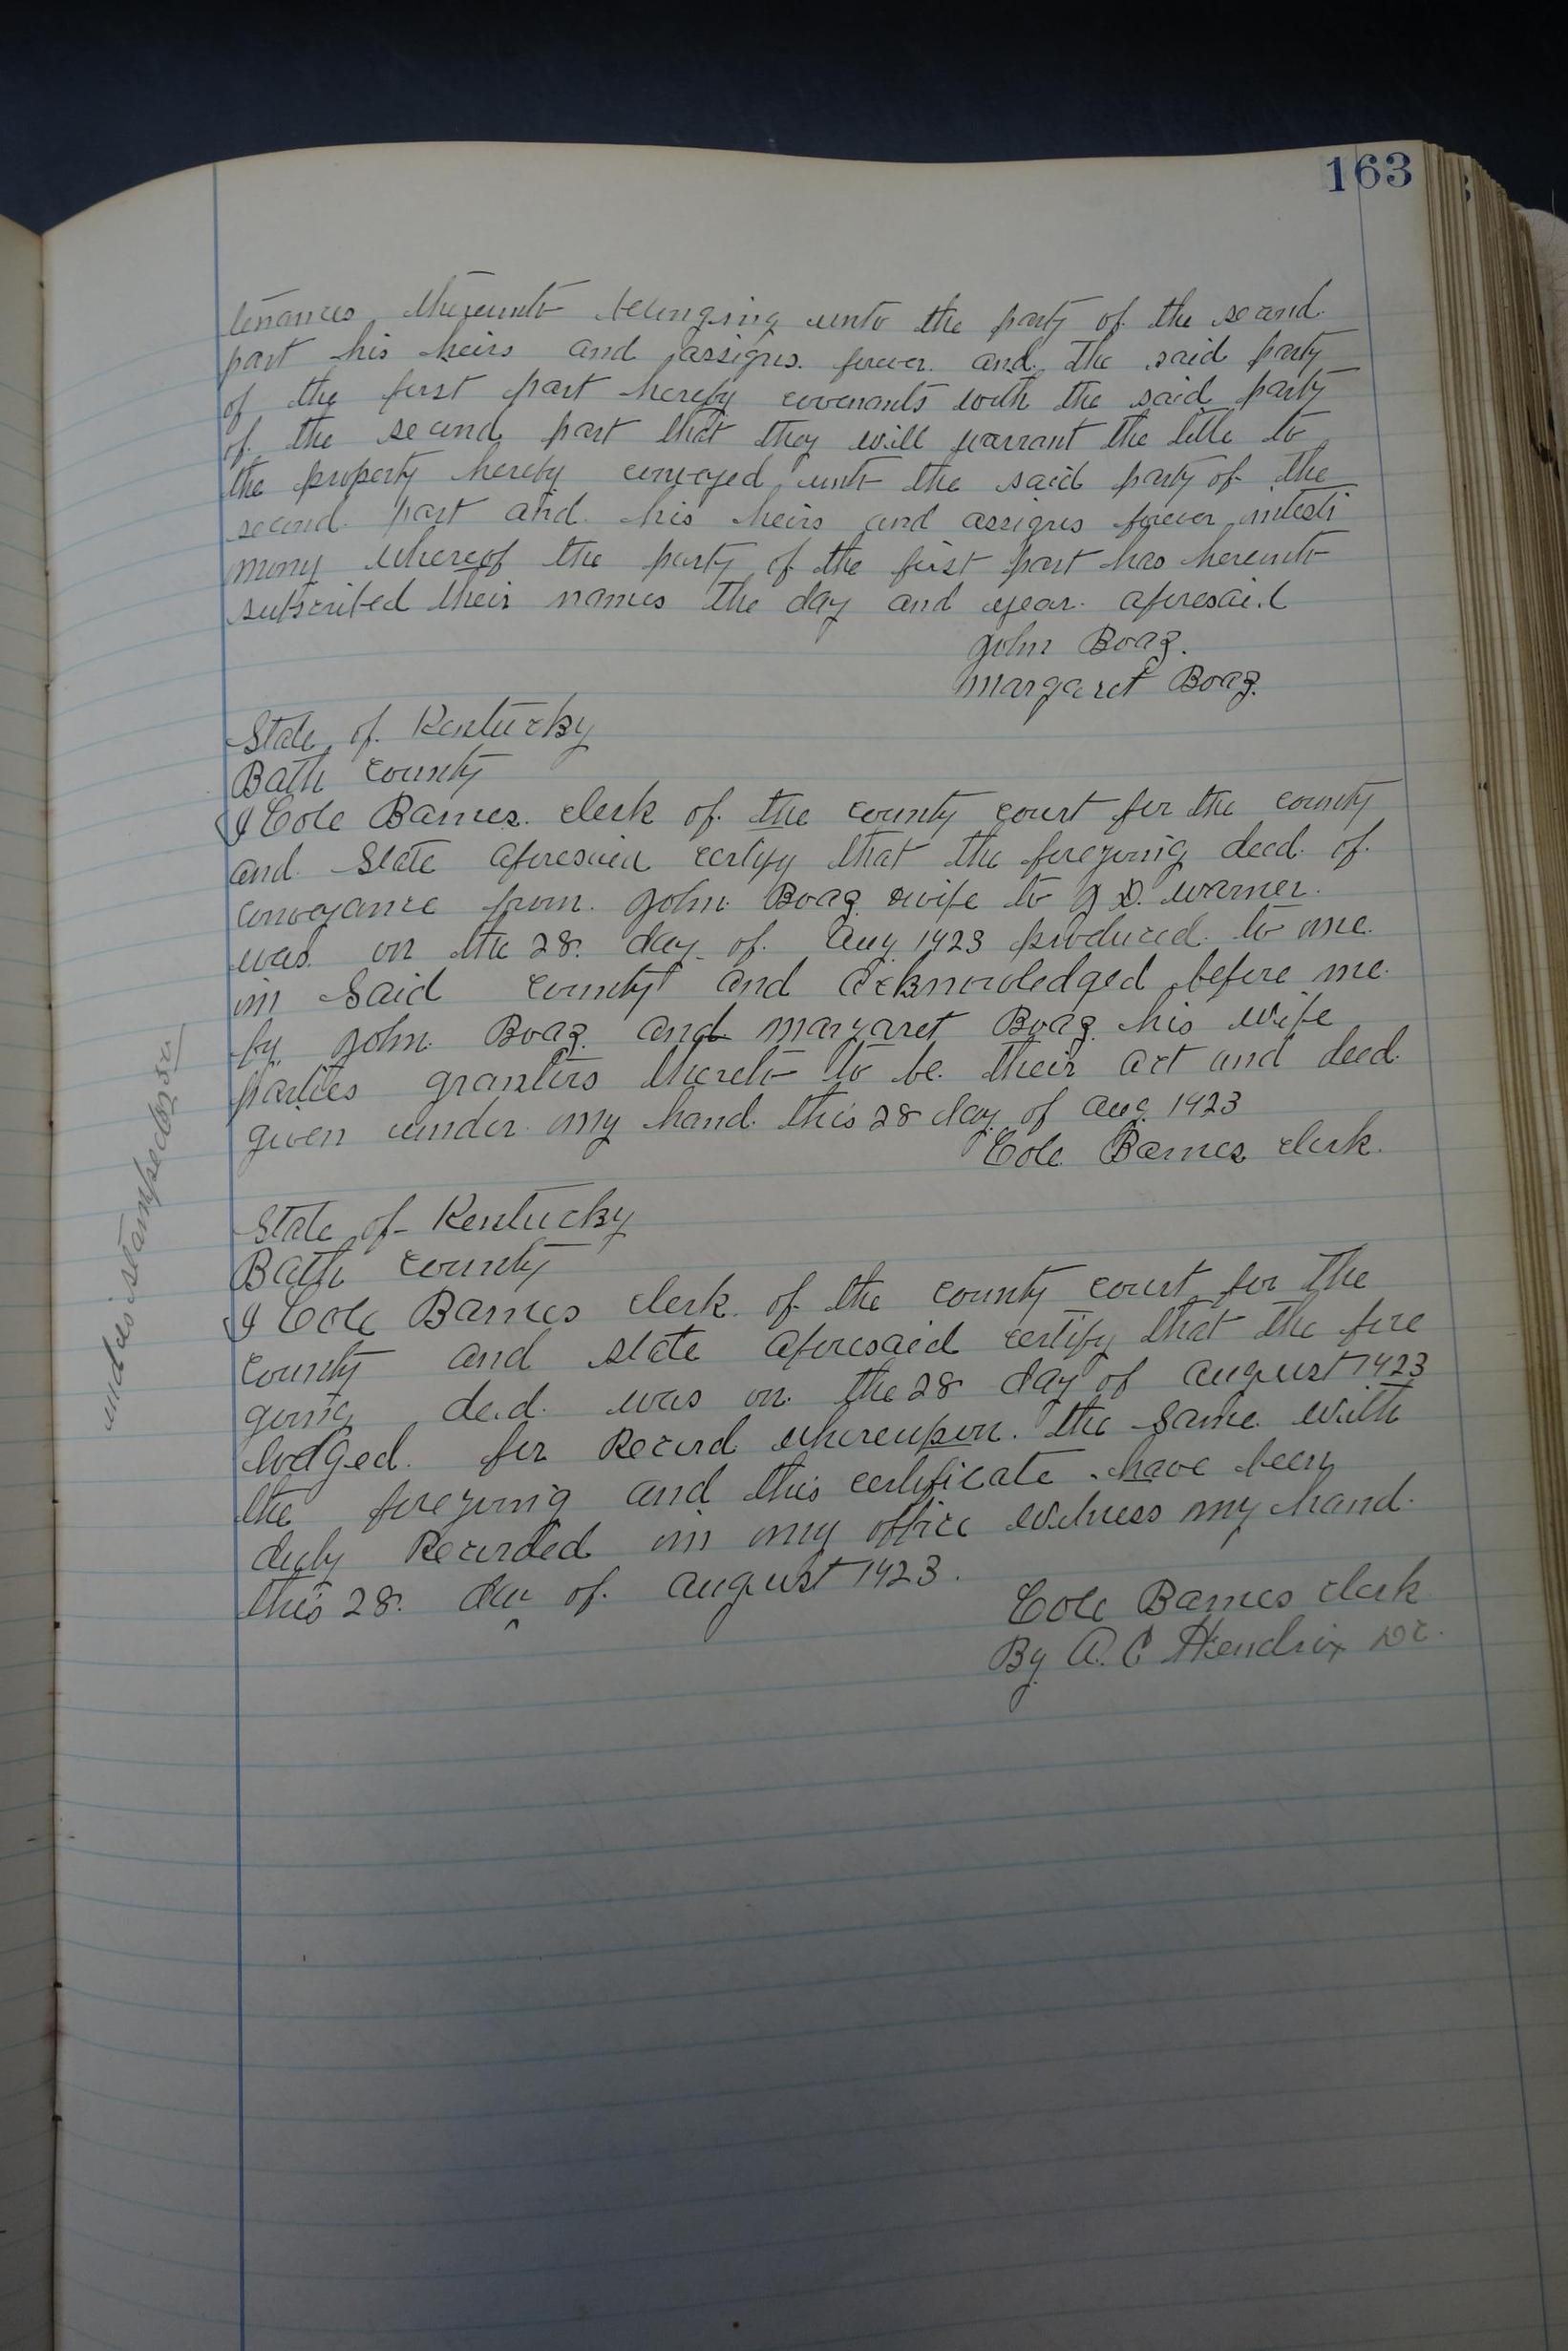 163
tenances thereunto belonging unto the party of the second
part his heirs and assigns. forever. and. The said party
of the first part hereby covenants with the said party
of. the second part that they will warrant the title to
the property hereby conveyed unto the said party of the
second. part and. his heirs and assigns forever intesti
mony whereof the party of the first part has hereunto
subscribed their names the day and year. aforesaid
John Boaz.
Margaret Boaz.
State of. Kentucky
Bath county
I Cole Barnes. clerk of. the county court for the county
and. State aforesaid certify that the foregoing deed. of.
conveyance from. John. Boaz. wife to J D. Warner.
was. on the 28. day of. Aug 1923 produced. to me.
in Said county and acknowledged before me.
by John. Boaz. and Margaret Boaz his wife
parties grantors thereto to be. their act and deed.
given under my hand. this 28 day of Aug. 1923
Cole. Barnes clerk.
State of Kentucky
Bath county
I Cole Barnes clerk. of the county court for The
county and state aforesaid certify that the fore
going deed. was on. the 28 day of August 1923
lodged. for Record whereupon. the same with
the foregoing and this certificate have been
duly Recorded in my office witness my hand.
this 28. day of. August 1923.
Cole Barnes clerk
By A. C Hendrix DC.